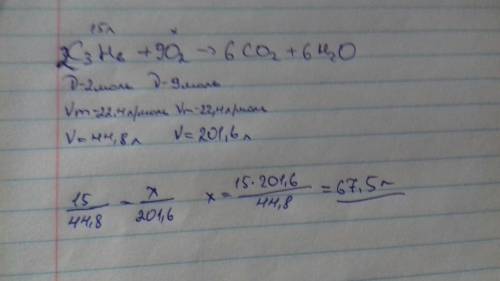 15л x
2C₃H₆ + 9O₂ → 6CO₂ + 6H₂O
ν-2моль ν-9моль
Vm-22,4л/моль Vm-22,4л/моль
V=44,8л V=201,6л
15/44,8 = x/201,6 x = 15·201,6/44,8 = 67,5л